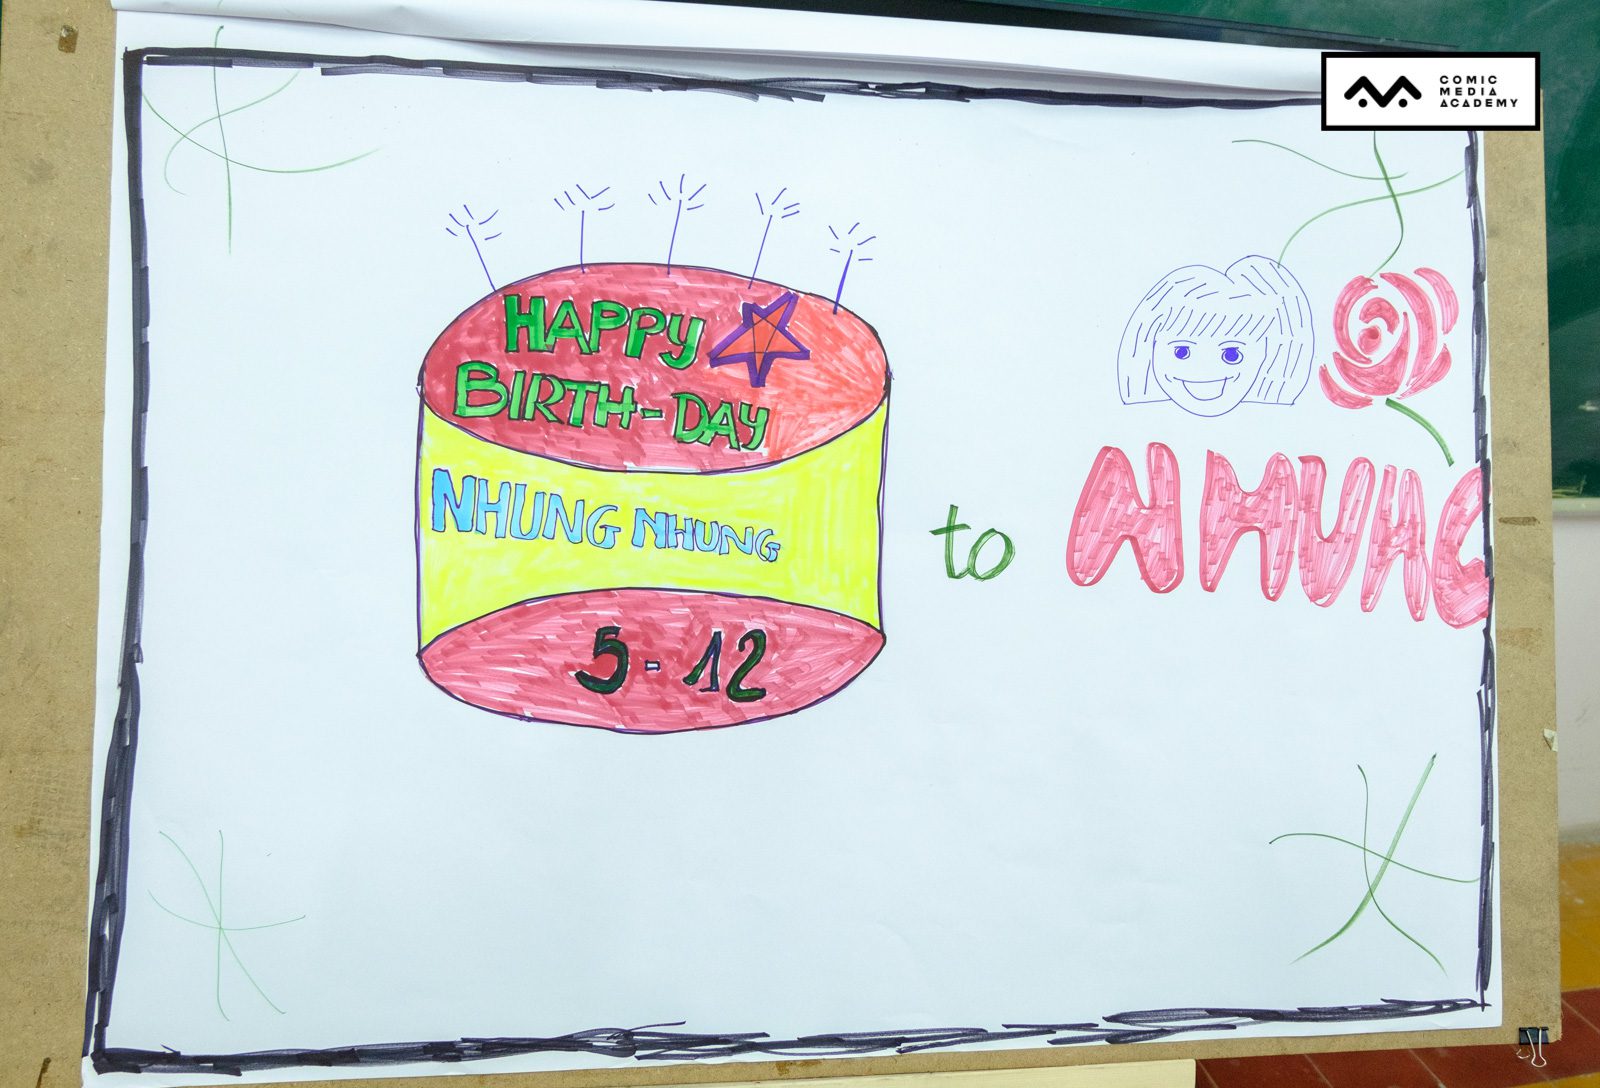 COMIC
MEDIA
ACADEMY
HAPPY
BIRTH-DAY
NHUNG NHUNG
to NHUNG
5-12